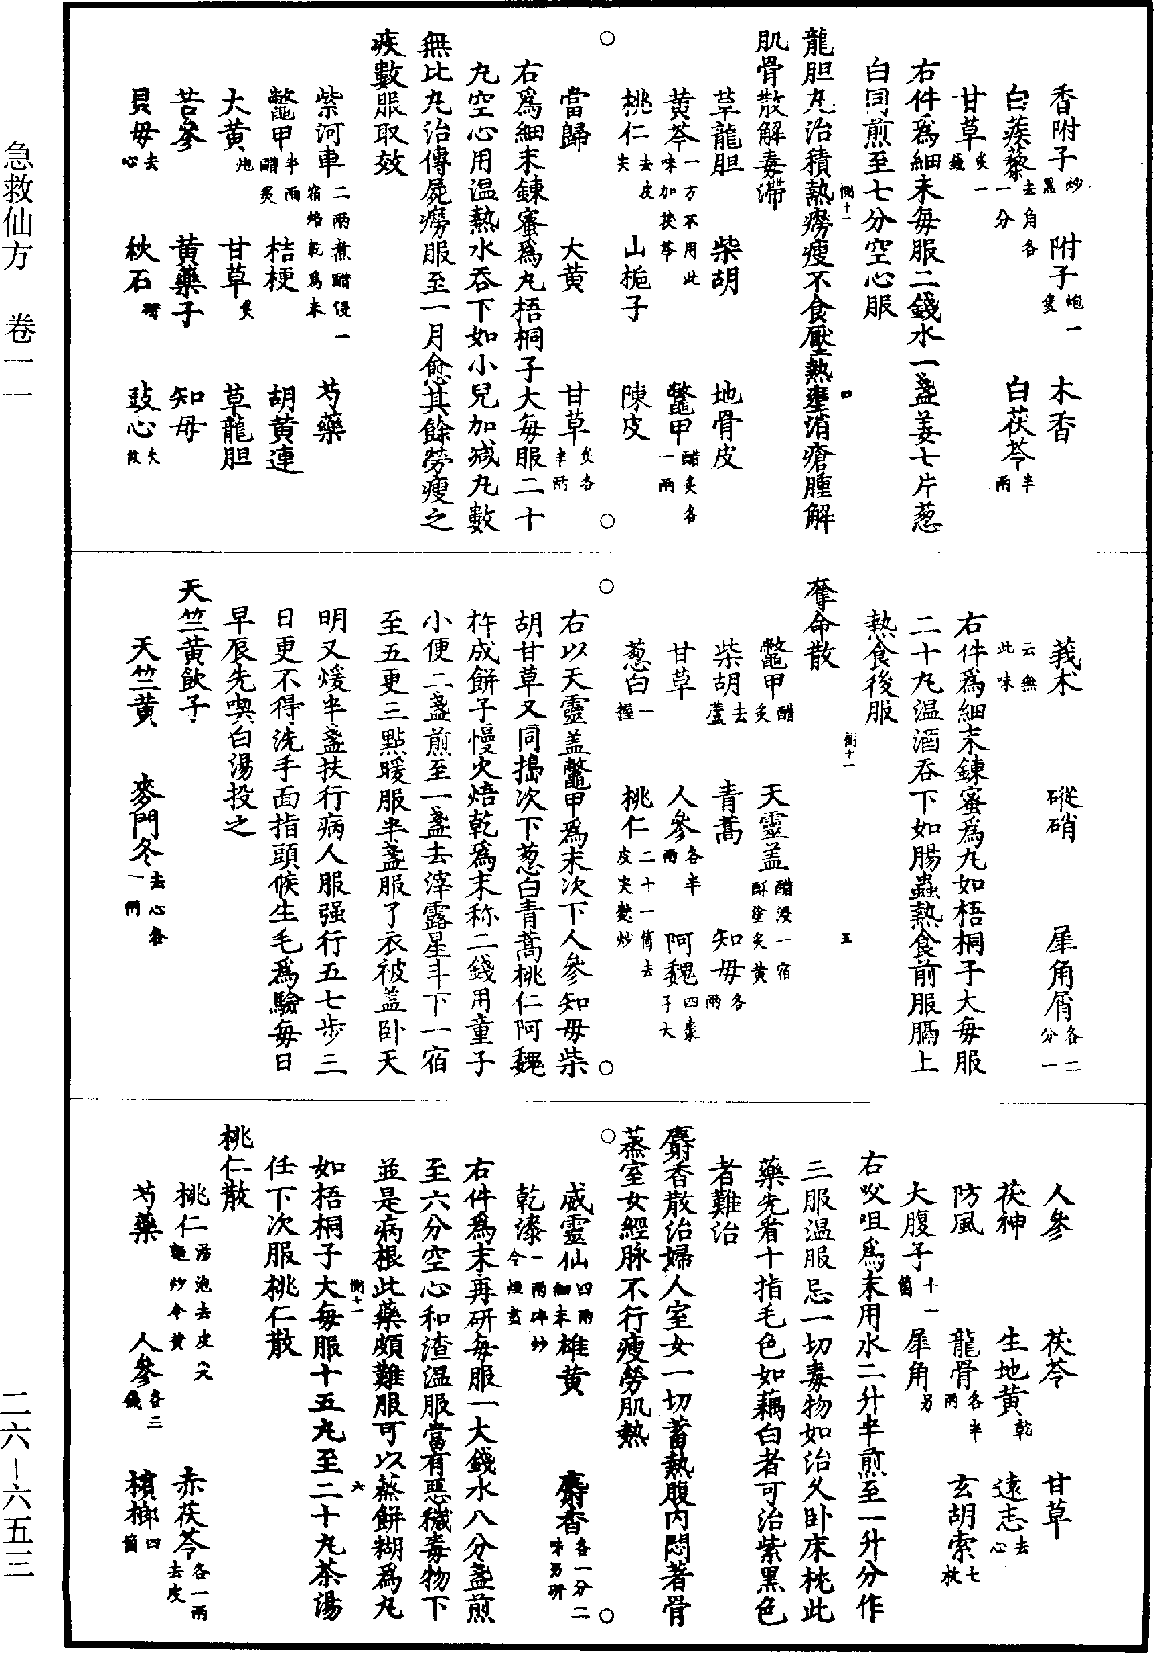 急救仙方　卷一一
二六—六五三
香附子炒黑　附子炮一　木香
白蒺藜去角各一分　白茯苓半兩
甘草炙一
右件爲細末每服二錢水一盞姜七片葱
白同煎至七分空心服
龍胆丸治積熱癆瘦不食壓熱壅消瘡腫解
肌骨散解毒滯
草龍胆　柴胡　地骨皮
黄芩一方不用此味加茯苓　鱉甲醋炙各一兩
桃仁去皮尖　山梔子　陳皮
當歸　大黄　甘草炙各半兩
右爲細末鍊蜜爲丸梧桐子大每服二十
丸空心用温熱水吞下如小兒加减丸數
無比丸治傳屍癆服至一月愈其餘勞瘦之
疾數服取效
紫河車二兩煮醋侵一宿焙乾爲末　芍藥
鱉甲半兩醋炙　桔梗　胡黄連
大黄炮　甘草炙　草龍胆
苦參　黄藥子　知母
貝母去心　秋石研　豉心
莪术云無此味　硝　犀角屑各二分一
右件爲細末鍊蜜爲丸如梧桐子大每服
二十丸温酒吞下如腸蟲熱食前服膈上
熱食後服
奪命散
鱉甲醋炙　天靈盖醋浸一宿酥塗炙黄
柴胡去蘆　青蒿　知母各兩
甘草　人參各半兩　阿魏四棗子大
葱白一握　桃仁二十一箇去皮尖麩炒
右以天靈盖鱉甲爲末次下人參知母柴
胡甘草又同搗次下葱白青蒿桃仁阿魏
杵成餅子慢火焙乾爲末称二錢用童子
小便二盞煎至一盞去滓露星斗下一宿
至五更三點暖服半盞服了衣被盖卧天
明又煖半盞扶行病人服强行五七步三
日更不得洗手面指頭候生毛爲驗每日
早辰先喫白湯投之
天竺黄飲子
天竺黄　麥門冬去心各一兩
人參　茯苓　甘草
茯神　生地黄乾　遠志去心
防風　龍骨各半兩　玄胡索七枚
大腹子十一箇　犀角另
右㕮咀爲末用水二升半煎至一升分作
三服温服忌一切毒物如治久卧床枕此
藥先看十指毛色如藕白者可治紫黑色
者難治
麝香散治婦人室女一切蓄熱腹内悶著骨
蒸室女經脉不行瘦勞肌熱
威靈仙四兩細末　雄黄　麝香各一分二味另研
乾漆一兩碎炒令烟盡
右件爲末再研每服一大錢水八分盞煎
至六分空心和渣温服當有惡穢毒物下
並是病根此藥頗難服可以蒸餅糊爲丸
如梧桐子大每服十五丸至二十丸茶湯
任下次服桃仁散
桃仁散
桃仁湯泡去皮尖麵炒令黄　人參各三錢　赤茯苓各一兩去皮
芍藥　檳榔四箇